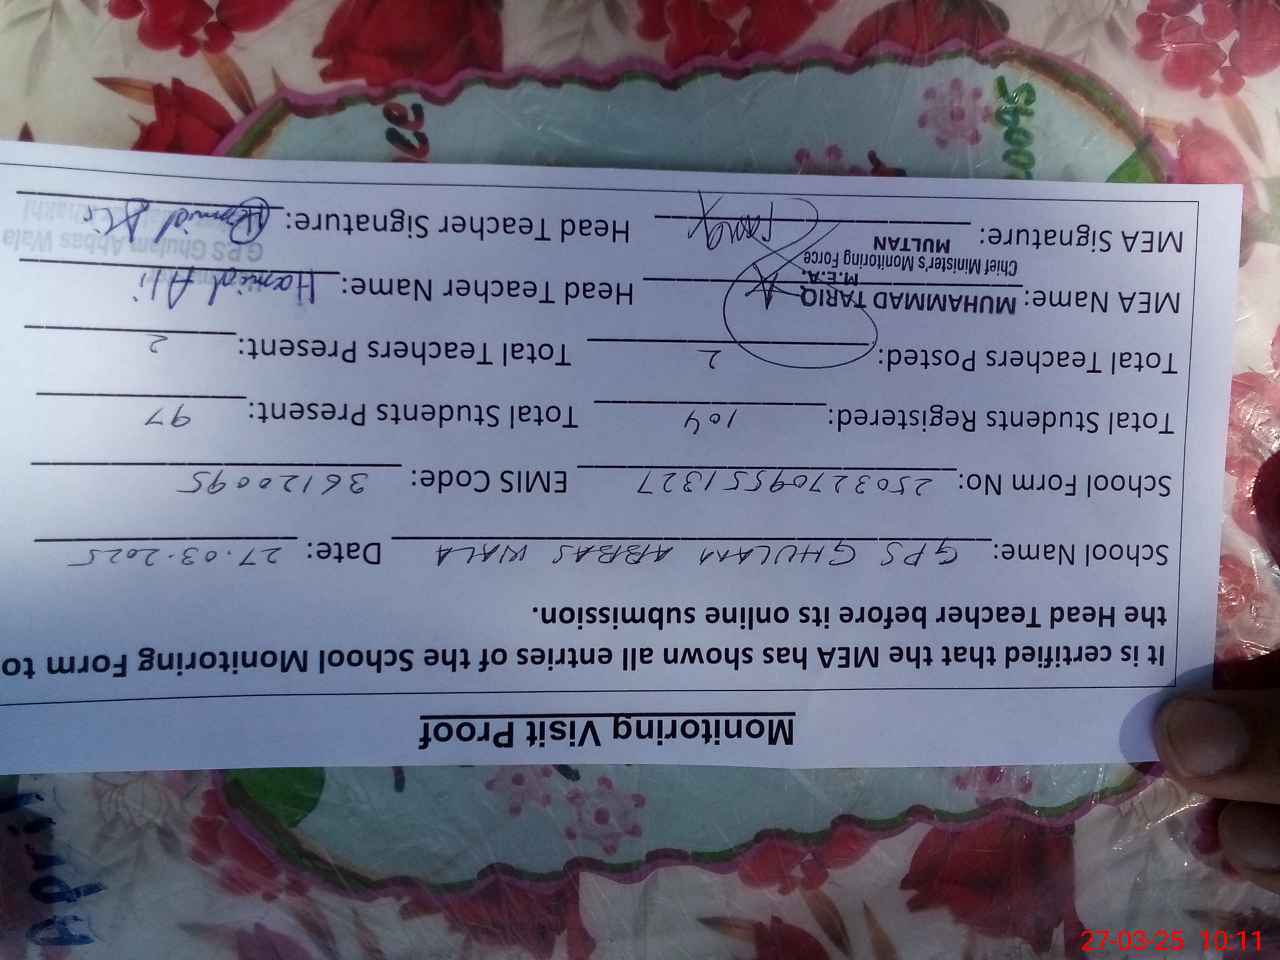 Monitoring Visit Proof
It is certified that the MEA has shown all entries of the School Monitoring Form to
the Head Teacher before its online submission.
School Name: GPS GHULAM ABBAS WALA Date: 27.03.2025
School Form No: 25032709551327 EMIS Code: 36120095
Total Students Registered: 104 Total Students Present: 97
Total Teachers Posted: 2 Total Teachers Present: 2
MEA Name: MUHAMMAD TARIQ Head Teacher Name: Hamid Ali
M.E.A.
Chief Minister's Monitoring Force
MULTAN
GPS Ghulam Abbas Wala
MEA Signature: Tariq Head Teacher Signature: Hamid Ali
27-03-25 10:11